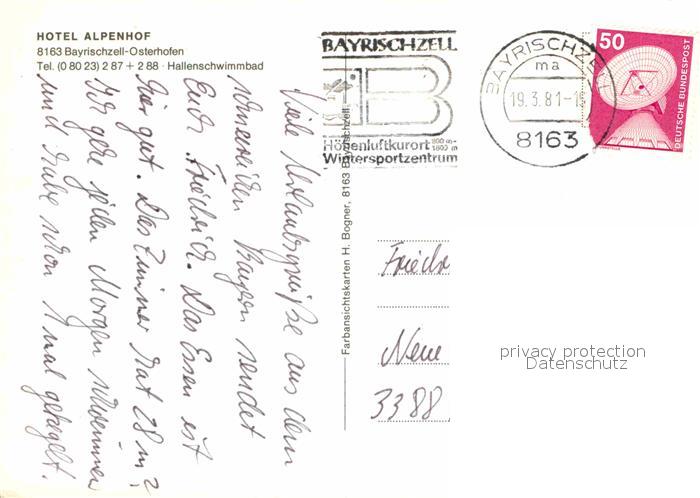 HOTEL ALPENHOF
8163 Bayrischzell-Osterhofen
Tel. (0 80 23) 2 87 + 2 88 · Hallenschwimmbad
BAYRISCHZELL
Höhenluftkurort 800 m - 1800 m
Wintersportzentrum
BAYRISCHZELL
ma
19.3.81-1
8163
50
DEUTSCHE BUNDESPOST
Viele Urlaubsgrüße aus dem
schneeweißen Bayern sendet
Euch Friedrich. Das Essen ist
hier gut. Das Zimmer hat 28 m²
Ich gehe jeden Morgen schwimmen
und habe schon 1 mal gekegelt.
Farbansichtskarten H. Bogner, 8163 Bayrischzell
Friedr
Neue
3388
privacy protection
Datenschutz